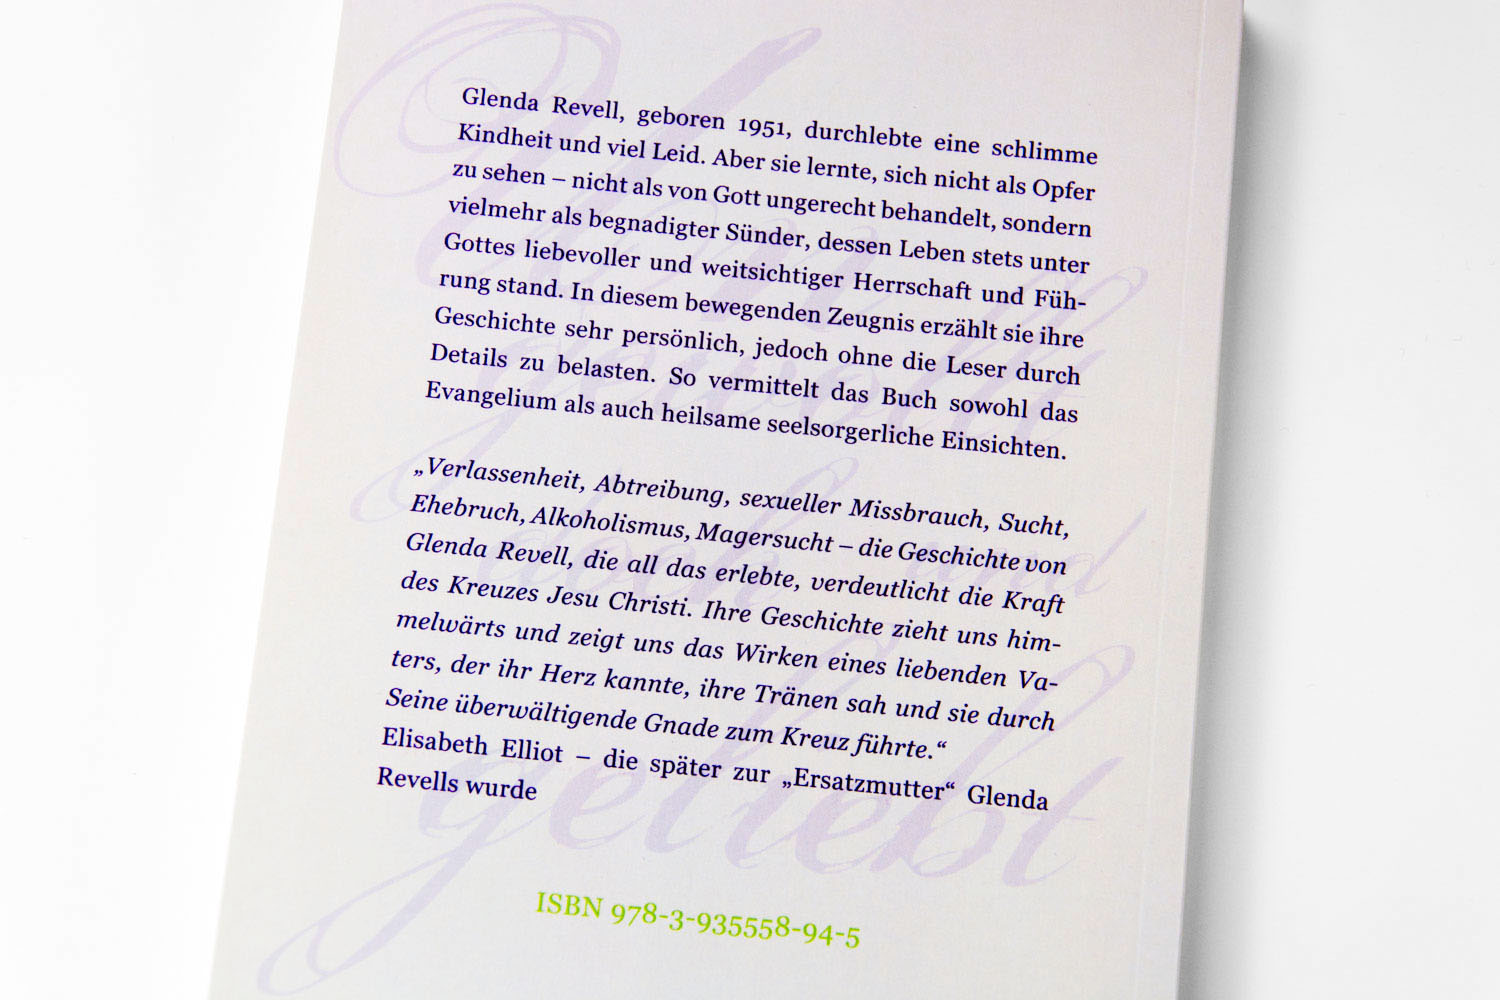 Glenda Revell, geboren 1951, durchlebte eine schlimme
Kindheit und viel Leid. Aber sie lernte, sich nicht als Opfer
zu sehen – nicht als von Gott ungerecht behandelt, sondern
vielmehr als begnadigter Sünder, dessen Leben stets unter
Gottes liebevoller und weitsichtiger Herrschaft und Füh-
rung stand. In diesem bewegenden Zeugnis erzählt sie ihre
Geschichte sehr persönlich, jedoch ohne die Leser durch
Details zu belasten. So vermittelt das Buch sowohl das
Evangelium als auch heilsame seelsorgerliche Einsichten.
„Verlassenheit, Abtreibung, sexueller Missbrauch, Sucht,
Ehebruch, Alkoholismus, Magersucht – die Geschichte von
Glenda Revell, die all das erlebte, verdeutlicht die Kraft
des Kreuzes Jesu Christi. Ihre Geschichte zieht uns him-
melwärts und zeigt uns das Wirken eines liebenden Va-
ters, der ihr Herz kannte, ihre Tränen sah und sie durch
Seine überwältigende Gnade zum Kreuz führte.“
Elisabeth Elliot – die später zur „Ersatzmutter“ Glenda
Revells wurde
ISBN 978-3-935558-94-5
Ungewollt
doch und
geliebt